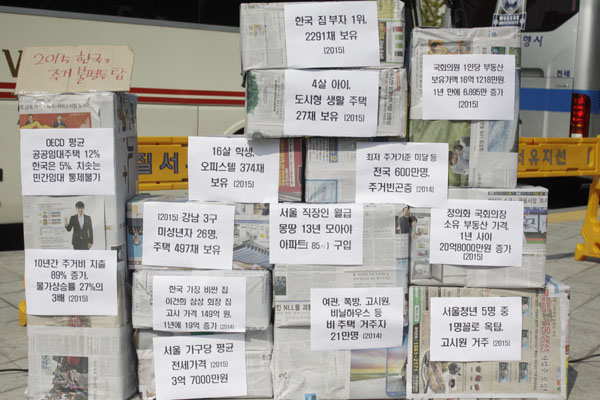 2015 한국
주거 불평등 탑
한국 집 부자 1위,
2291채 보유
(2015)
국회의원 1인당 부동산
보유가액 16억 1218만원.
1년 만에 6.895만 증가
(2015)
4살 아이,
도시형 생활 주택
27채 보유 (2015)
OECD 평균
공공임대주택 12%
한국은 5%. 치솟는
민간임대 통제불가
16살 학생,
오피스텔 374채
보유 (2015)
최저 주거기준 미달 등
전국 600만명,
주거빈곤층 (2014)
(2015) 강남 3구
미성년자 26명,
주택 497채 보유
서울 직장인 월급
몽땅 13년 모아야
아파트(85㎡) 구입
정의화 국회의장
소유 부동산 가격,
1년 사이
20억8000만원 증가
(2015)
10년간 주거비 지출
89% 증가,
물가상승률 27%의
3배 (2015)
한국 가장 비싼 집
이건희 삼성 회장 집
고시 가격 149억 원,
1년에 19억 증가 (2014)
여관, 쪽방, 고시원,
비닐하우스 등
비 주택 거주자
21만명 (2014)
서울청년 5명 중
1명꼴로 옥탑,
고시원 거주 (2015)
서울 가구당 평균
전세가격 (2015)
3억 7000만원
질서
질서유지선